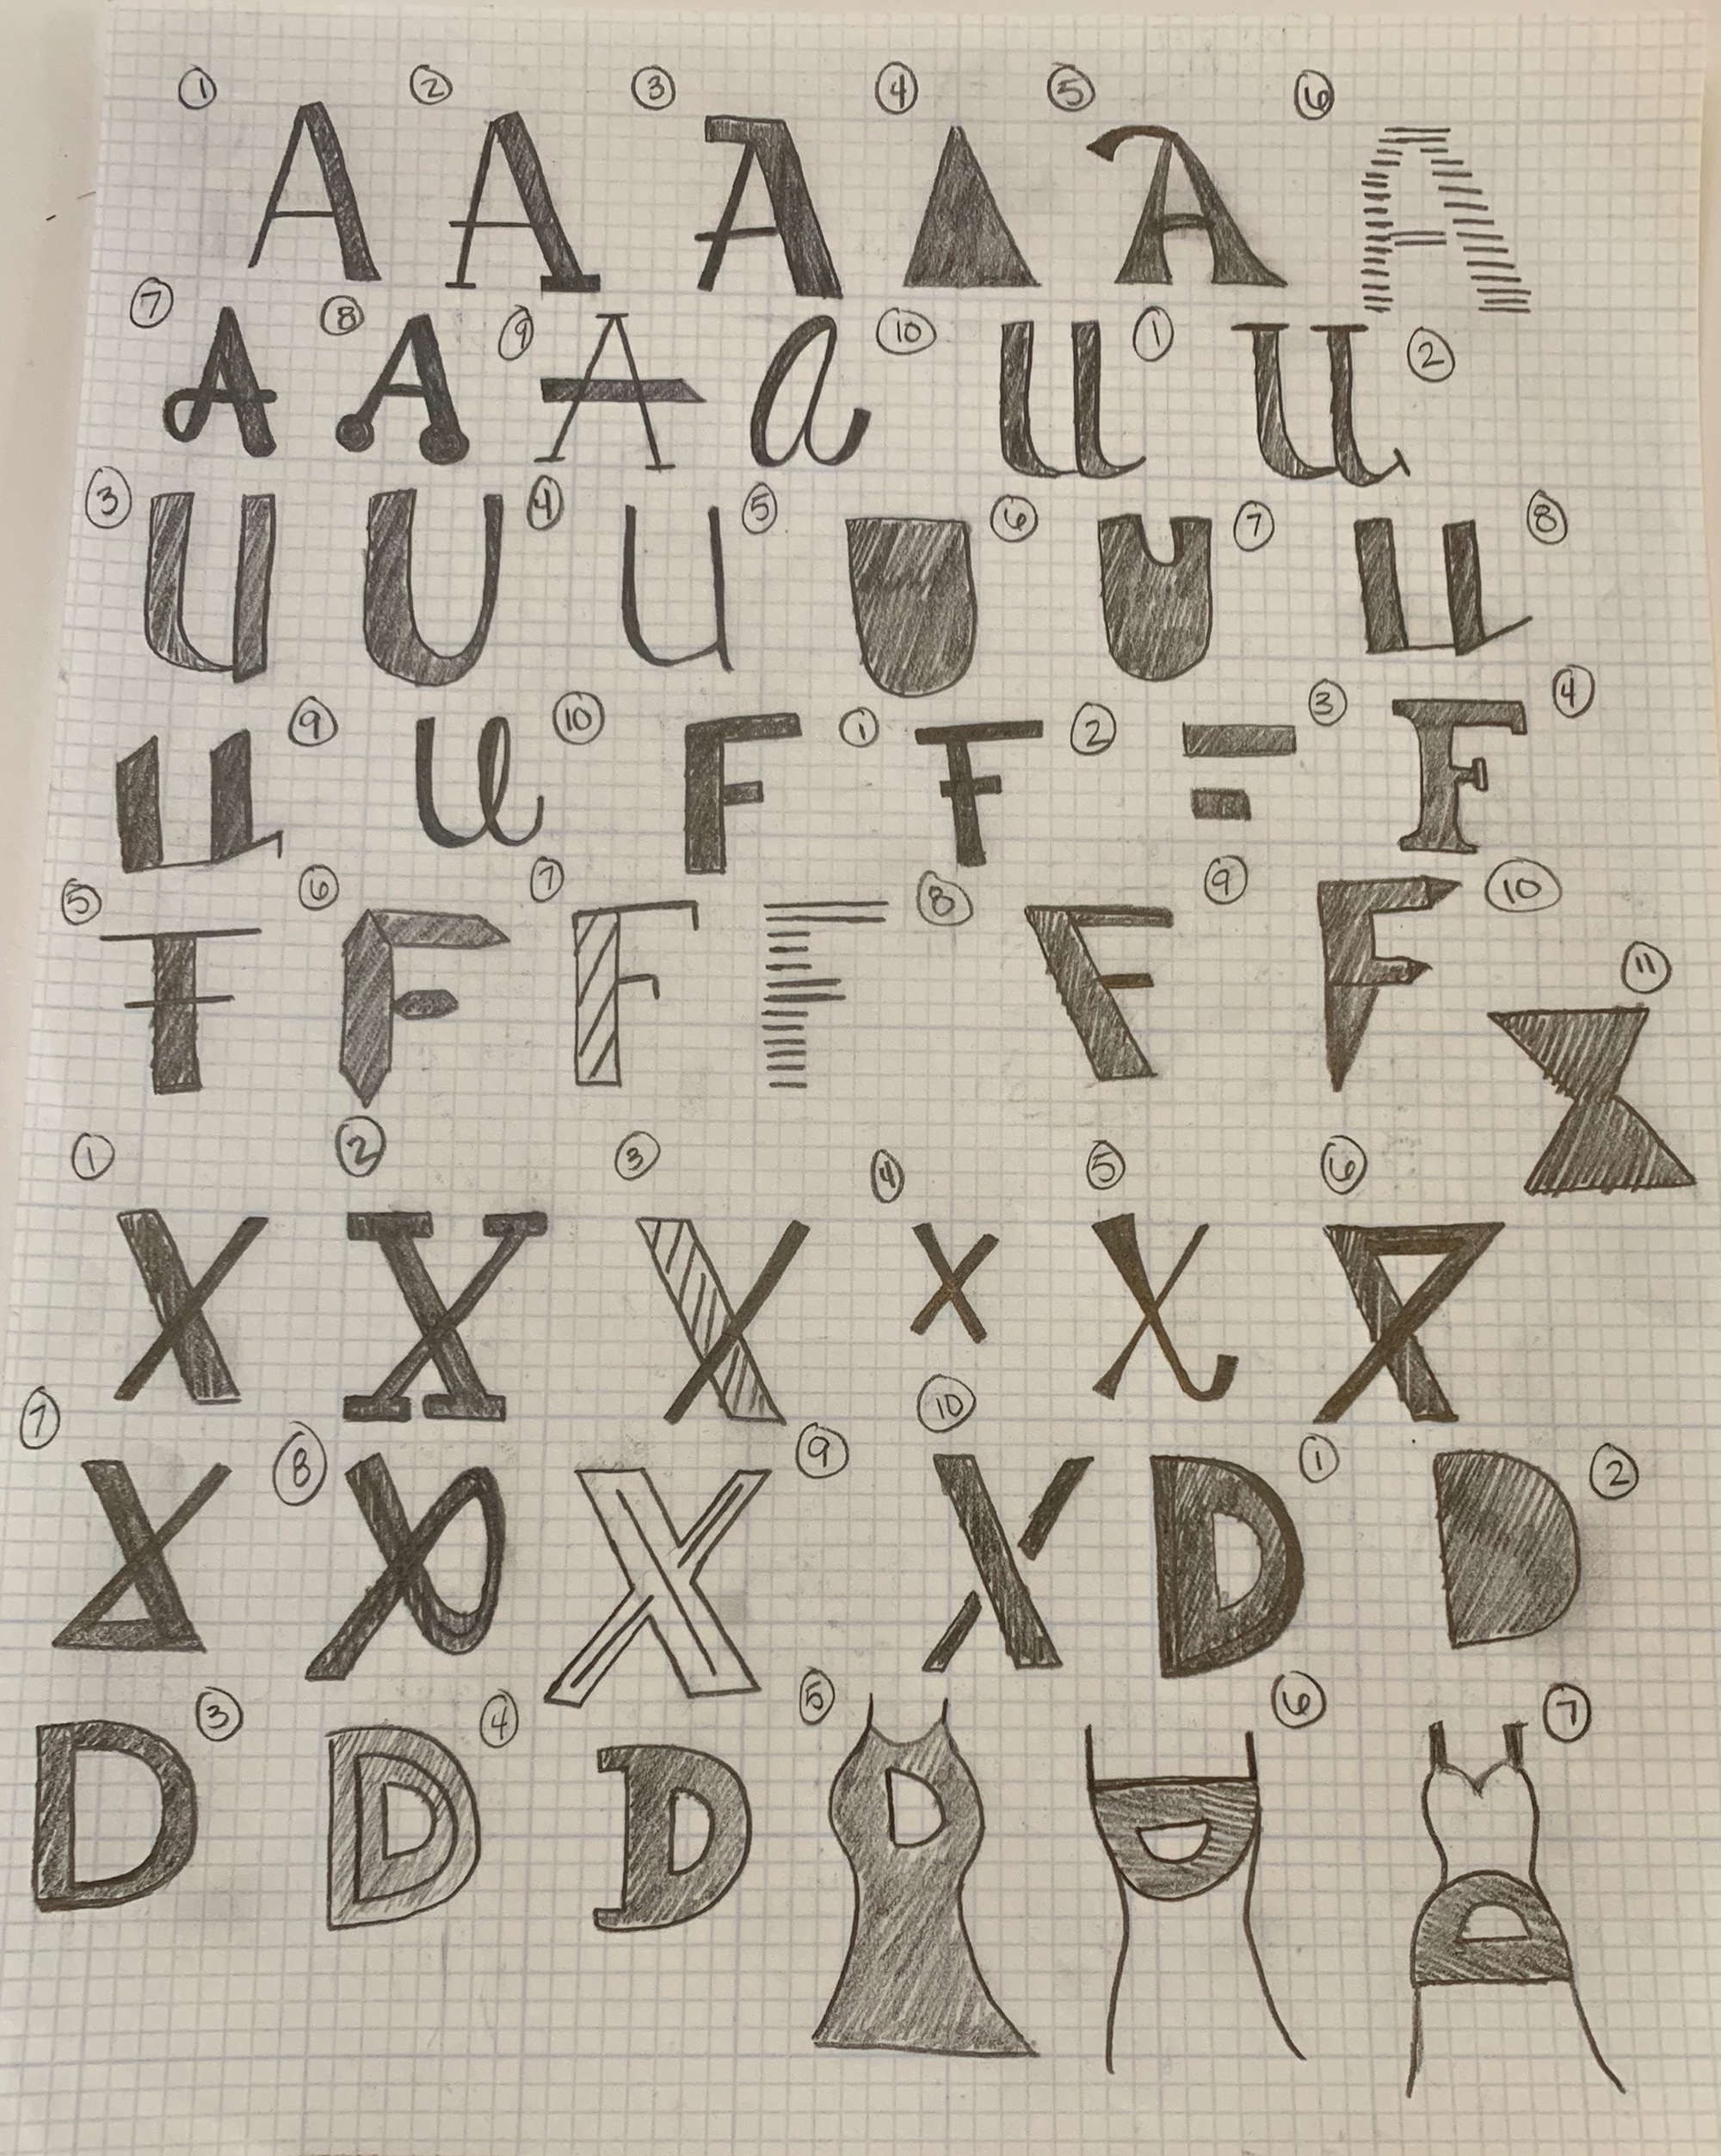 ① A ② A ③ A ④ A ⑤ A ⑥ A
⑦ A ⑧ A ⑨ A a ⑩ U ① U ②
③ U U ④ U ⑤ U ⑥ U ⑦ U ⑧
U ⑨ U ⑩ F ① F ② F ③ F ④
⑤ F ⑥ F ⑦ F F ⑧ F ⑨ F ⑩ X ⑪
① X ② X ③ X ④ X ⑤ X ⑥ X
⑦ X ⑧ X X ⑨ ⑩ X D ① D ②
D ③ D ④ D ⑤ D D ⑥ D ⑦